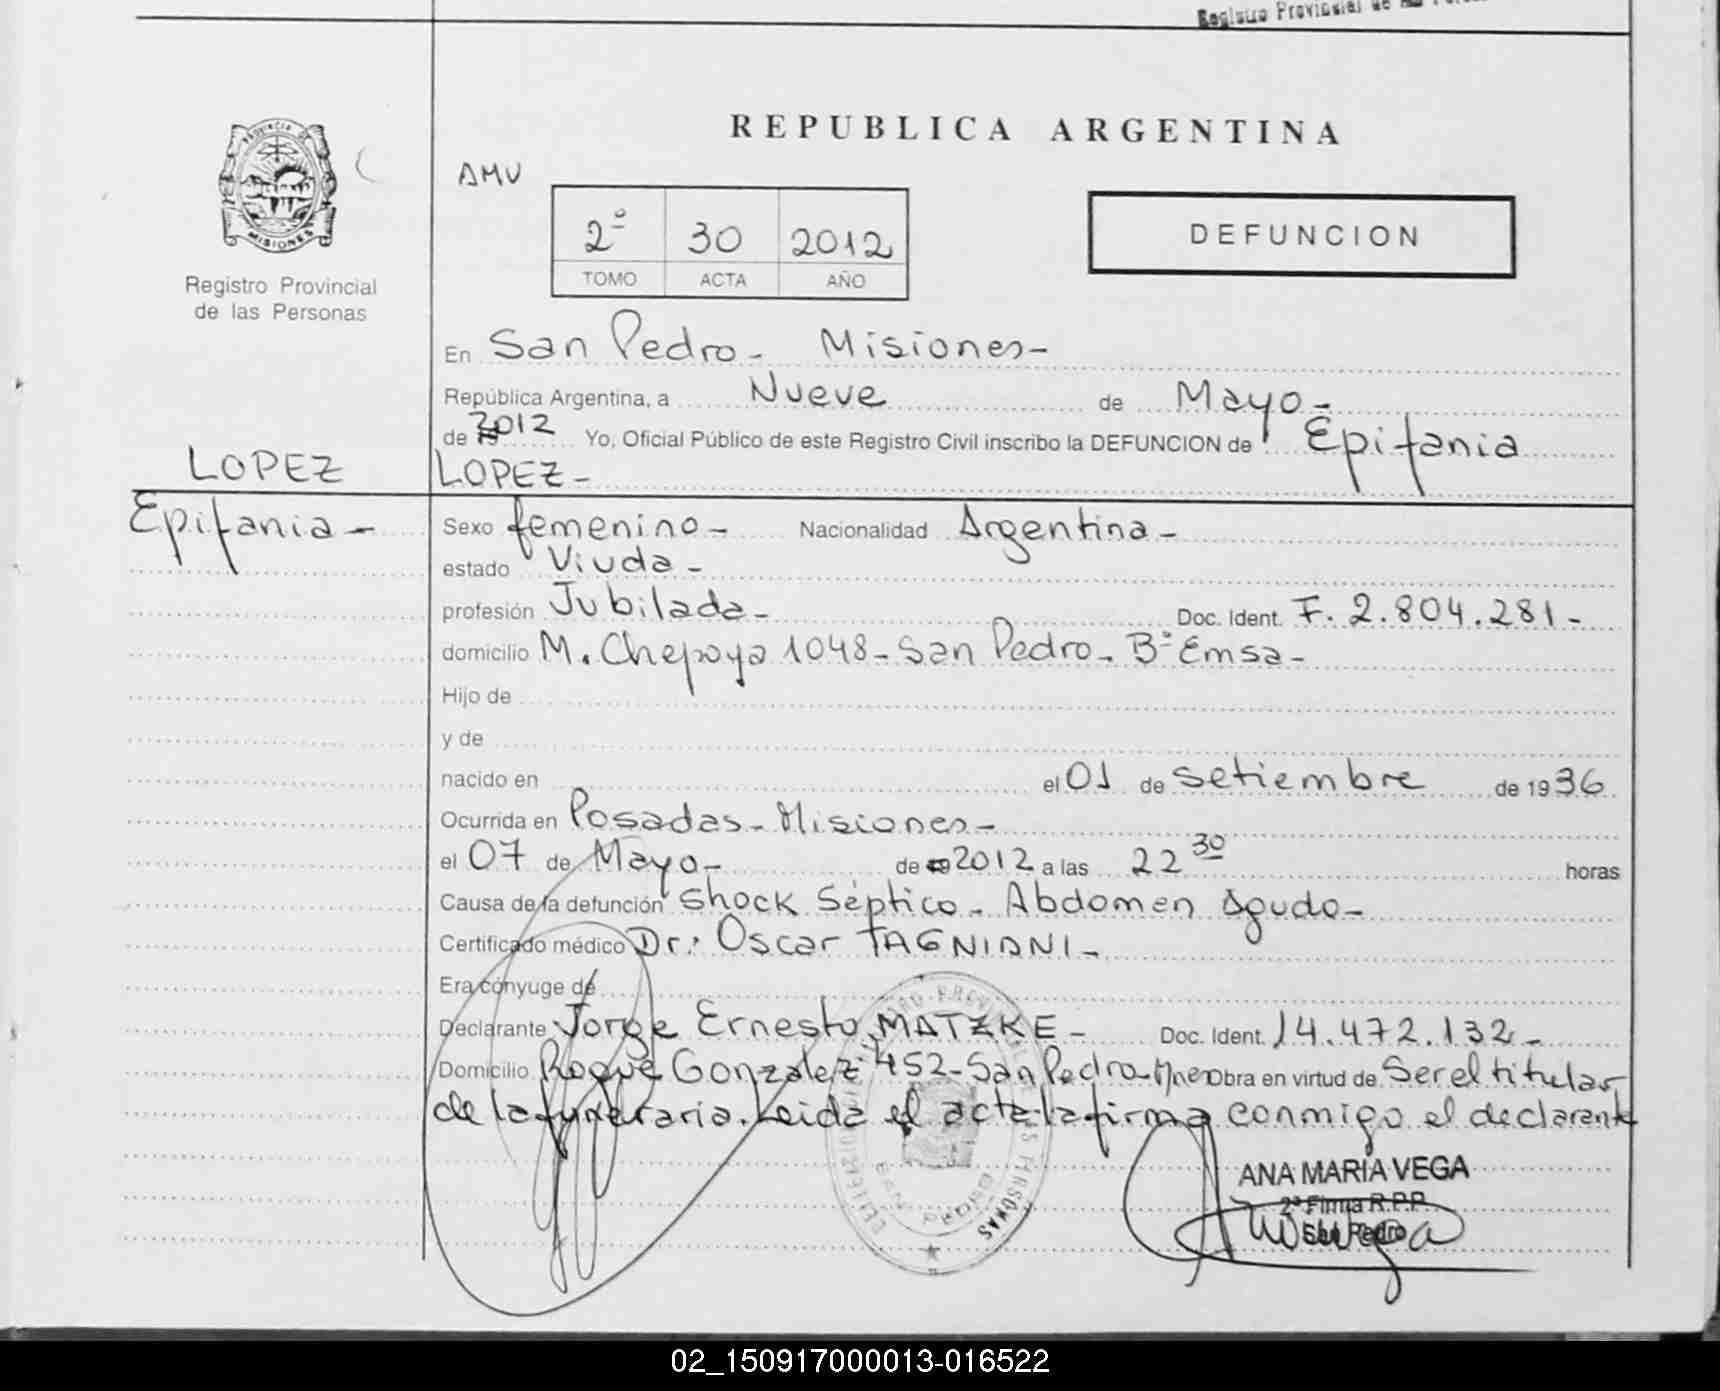 Registro Provincial de las
REPUBLICA ARGENTINA
PROVINCIA DE
MISIONES
AMV
2º 30 2012
TOMO ACTA AÑO
DEFUNCION
Registro Provincial
de las Personas
En San Pedro - Misiones -
República Argentina, a Nueve de Mayo -
de 2012 Yo, Oficial Público de este Registro Civil inscribo la DEFUNCION de Epifania
LOPEZ
LOPEZ -
Epifania -
Sexo femenino - Nacionalidad Argentina -
estado Viuda -
profesión Jubilada - Doc. Ident. F. 2.804.281 -
domicilio M. Chepoya 1048 - San Pedro - Bº Emsa -
Hijo de
y de
nacido en el 01 de Setiembre de 1936
Ocurrida en Posadas - Misiones -
el 07 de Mayo - de 2012 a las 22 30 horas
Causa de la defunción Shock Séptico - Abdomen Agudo -
Certificado médico Dr: Oscar TAGNIANI -
Era cónyuge de
Declarante Jorge Ernesto MATZKE - Doc. Ident. 14.472.132 -
Domicilio Roque Gonzalez 452 - San Pedro - Mnes Obra en virtud de Ser el titular
de la funeraria. Leida el acta la firma conmigo el declarante
ANA MARIA VEGA
2ª Firma R.P.P.
San Pedro
02_150917000013-016522